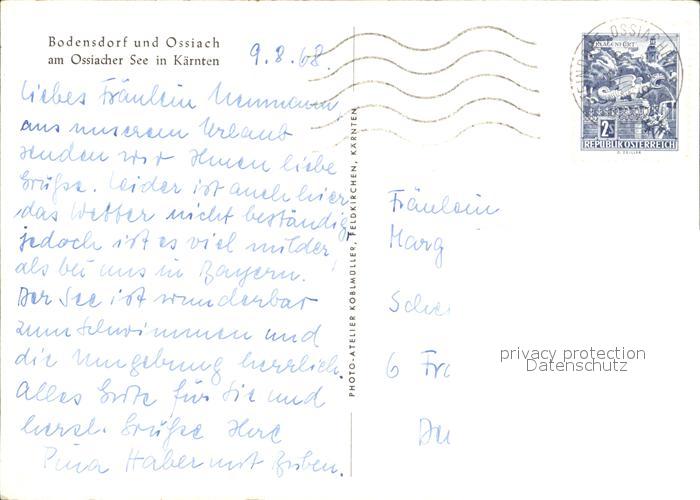 Bodensdorf und Ossiach
am Ossiacher See in Kärnten
9.8.68.
Liebes Fräulein Neumann,
aus unserem Urlaub
senden wir Ihnen liebe
Grüße. Leider ist auch hier
das Wetter nicht beständig,
jedoch ist es viel milder,
als bei uns in Bayern.
Der See ist wunderbar
zum Schwimmen und
die Umgebung herrlich.
Alles Gute für Sie und
herzl. Grüße Ihre
Haber mit
PHOTO-ATELIER KOBLMÜLLER, FELDKIRCHEN, KÄRNTEN
KLAGENFURT
2S
REPUBLIK ÖSTERREICH
Fräulein
Marg
6 Fr
privacy protection
Datenschutz